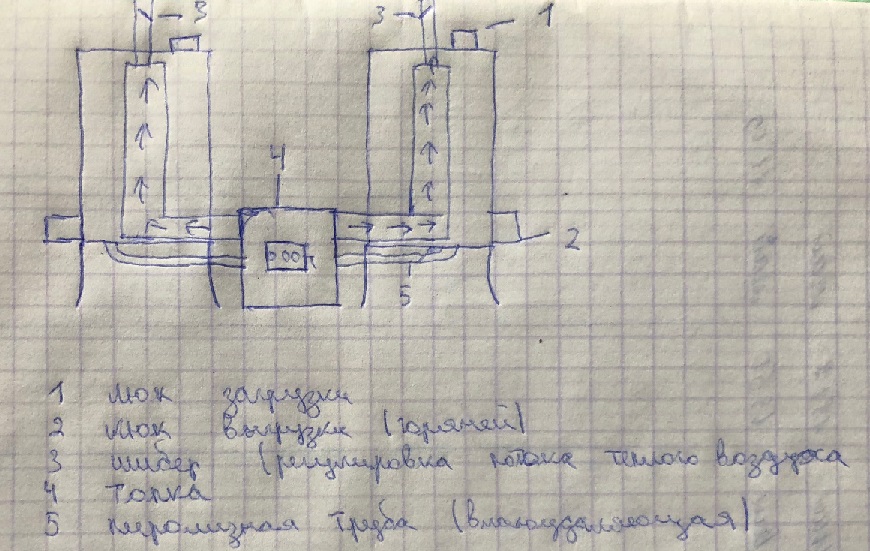 3
3
1
4
2
5
1 люк загрузки
2 люк выгрузки (горячей)
3 шибер (регулировка потока теплого воздуха
4 топка
5 пиролизная труба (влагоудаляющая)